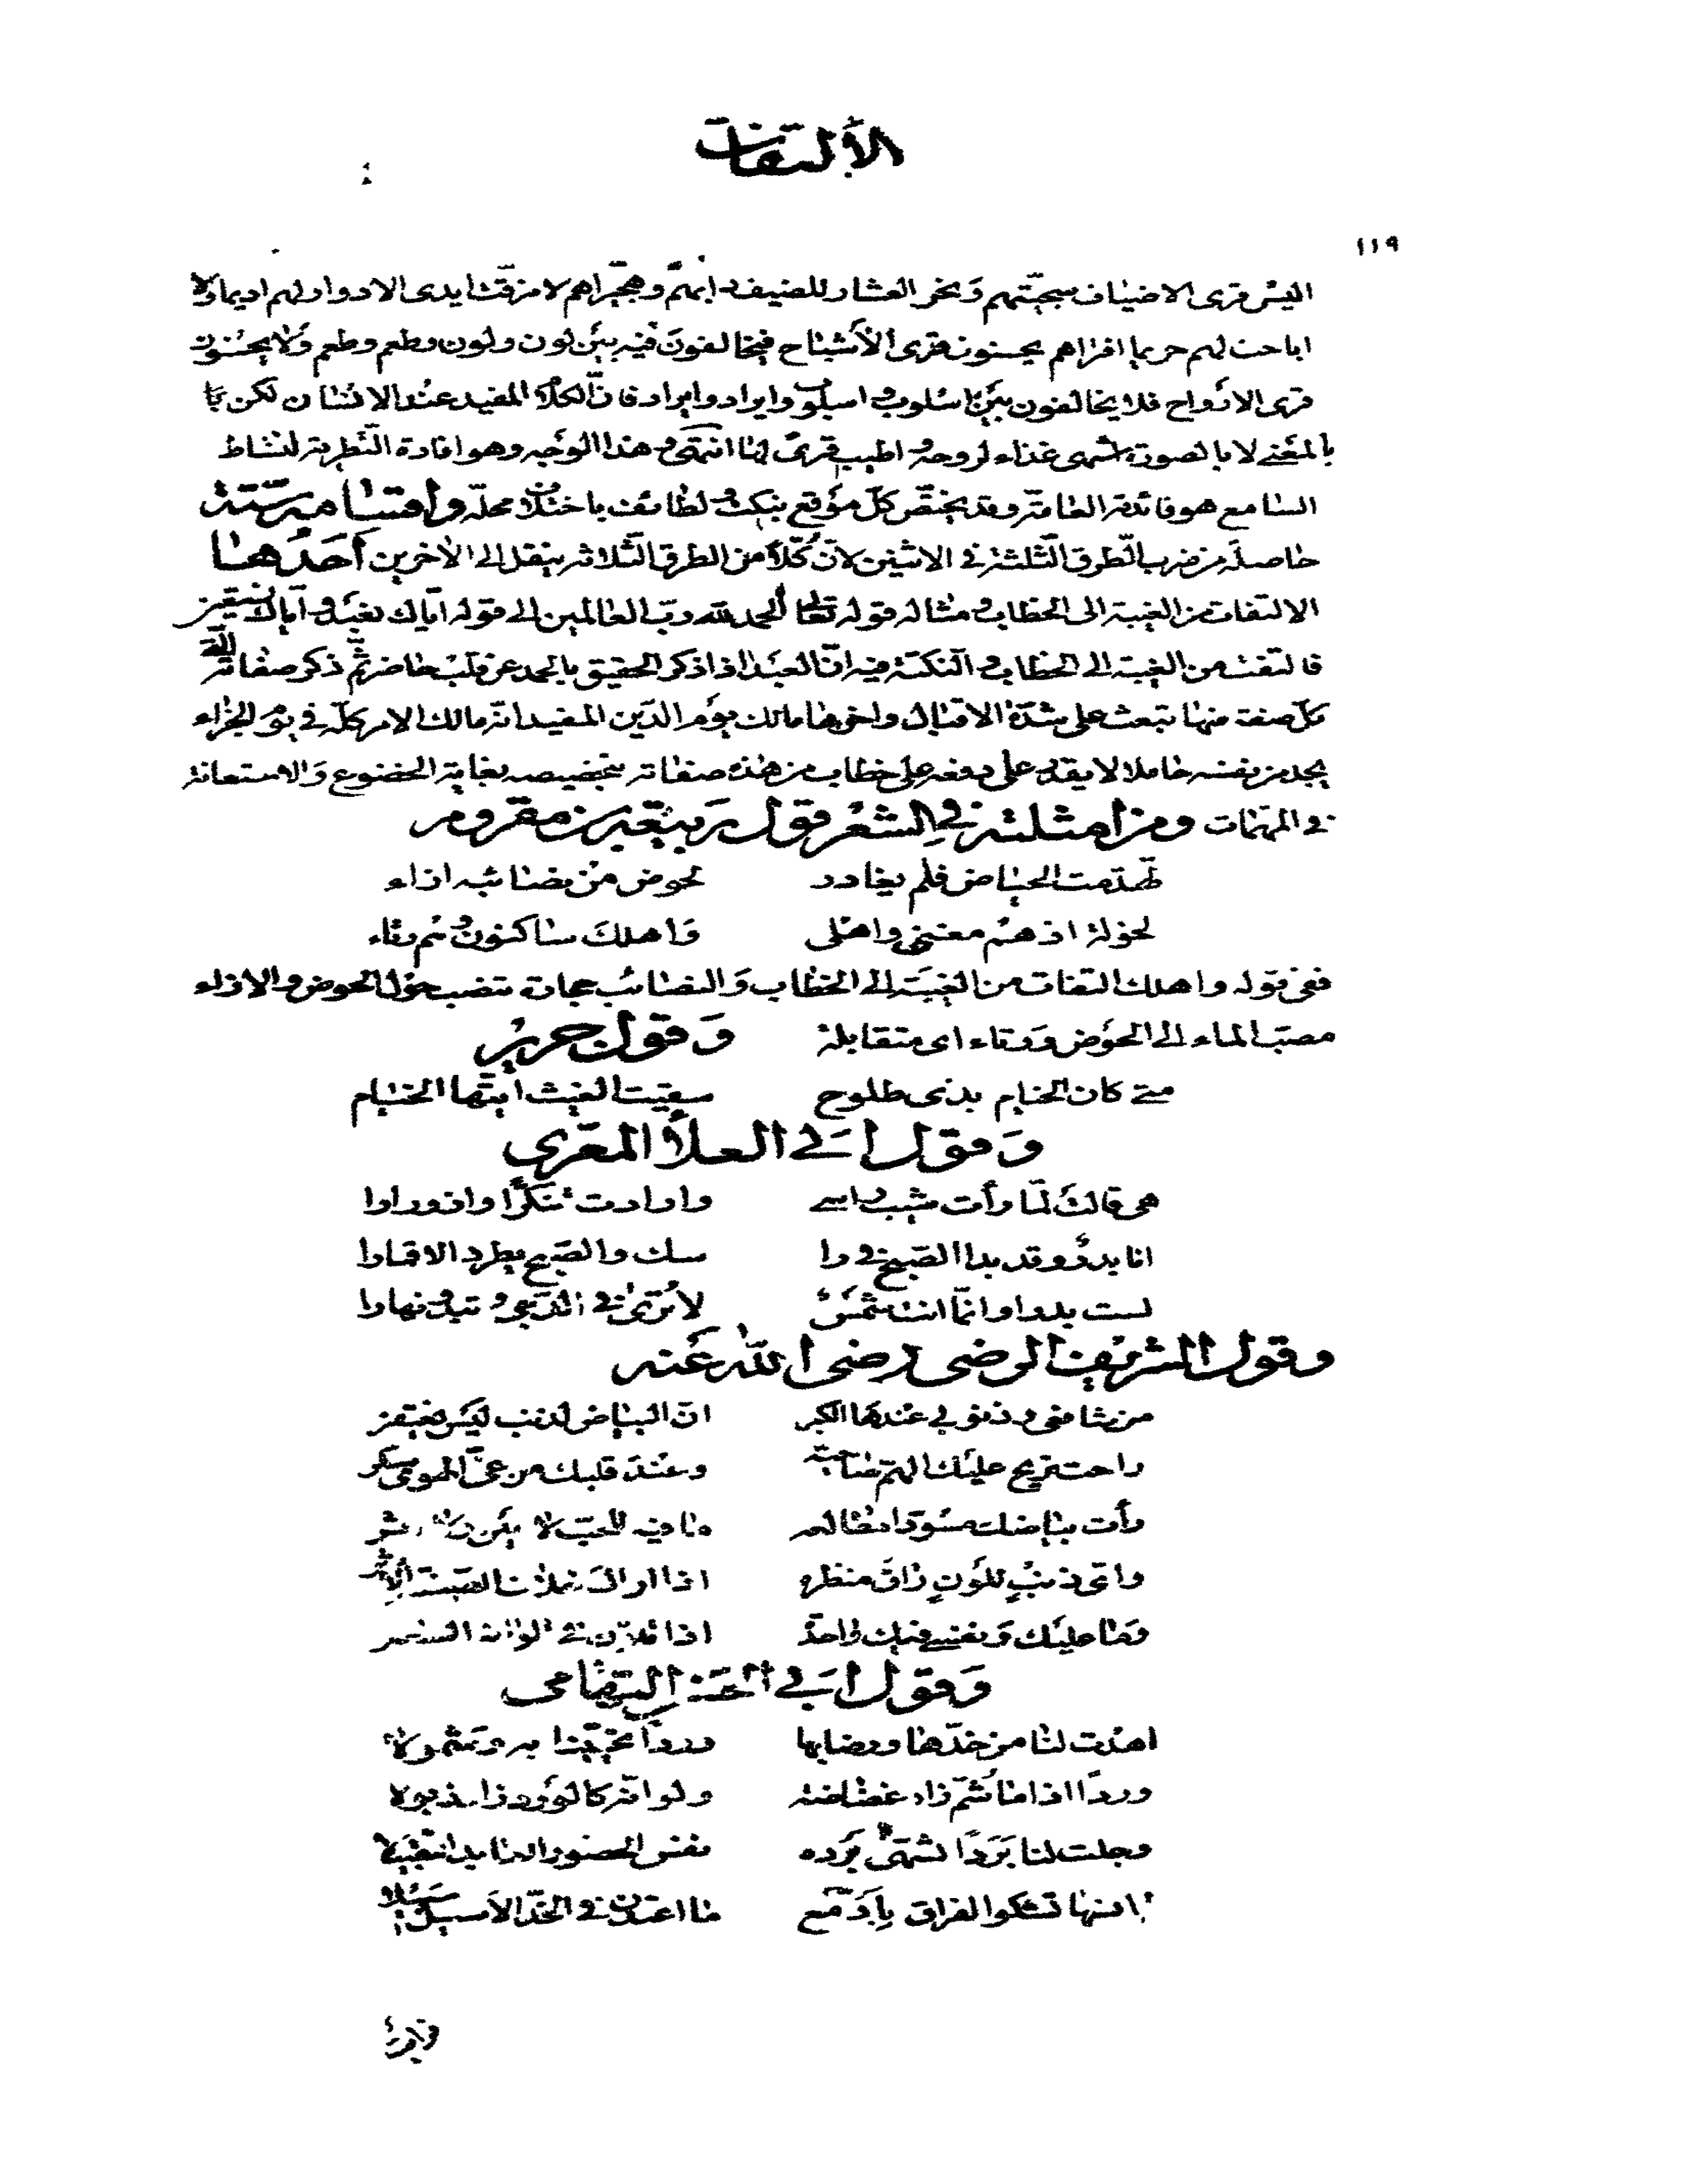 الألتفات
١١٩
اليس قرى الاضياف سجيتهم ونحر العشار للضيف دابهم وهجيراهم لا مزقت ايدى الادوار لهم اديما ولا
اباحت لهم حريما افتراهم يحسنون قرى الأشباح فيخالفون فيه بين لون ولون وطعم وطعم ولا يحسنون
قرى الارواح فلا يخالفون بين اسلوب واسلوب وايراد وايراد فان الكلام المفيد عند الانسان لكن
بالمعنى لا بالصورة اشهى غذاء لروحه واطيب قرى لها انتهى وهذا الوجه وهو افادة التطرية لنشاط
السامع هو فائدته العامة وقد يختص كل موقع بنكت ولطائف باختلاف محله واقسامه ستة
حاصلة من ضرب الطرق الثلثة فى الاثنين لان كلا من الطرق الثلاثة ينقل الى الأخرين أحدها
الالتفات من الغيبة الى الخطاب ومثاله قوله تعالى ألحمد لله رب العالمين الى قوله اياك نعبد واياك نستعين
فالتفت من الغيبة الى الخطاب والنكتة فيه ان العبد اذا ذكر الحقيق بالحمد عن قلب حاضر ثم ذكر صفاته التى
كل صفة منها تبعث على شدة الاقبال واخرها مالك يوم الدين المفيد انه مالك الامر كله فى يوم الجزاء
يجد من نفسه حاملا لا يقدر على دفعه على خطاب من هذه صفاته بتخصيصه بغاية الخضوع والاستعانة
فى المهمات ومن امثلته فى الشعر قول ربيعة بن مقروم
تهدمت الحياض فلم يغادر لحوض من نصائبه ازاء
لخولة اذ هم مغنى واهلى وأهلك ساكنون وهم رئاء
ففى قوله واهلك التفات من الغيبة الى الخطاب والنصائب حجارة تنصب حول الحوض والازاء
مصب الماء الى الحوض ورئاء اى متقابلة وقول جرير
متى كان الخيام بذى طلوح سقيت الغيث ايتها الخيام
وقول ابى العلأ المعرى
هى قالت لما رأت شيب راسى وارادت تنكرا وازورارا
انا بدر وقد بدا الصبح فى را سك والصبح يطرد الاقمارا
لست بدرا وانما انت شمس لا ترى فى الدجى وتبدو نهارا
وقول الشريف الرضى رضى الله عنه
من شافعى وذنوبى عندها الكبر ان البياض لذنب ليس يغتفر
راحت تريح عليك الهم صاحية وعند قلبك من غى الهوى سكر
رأت بياضك مسودا مطالعه ما فيه للحب لا عين ولا اثر
واى ذنب للون راق منظره اذا اراك خلاف الصبغة الأثر
وما عليك ونفسى فيك واحدة اذا تلون فى الوانه الشعر
وقول ابى الحسن التهامى
اهدت لنا من خدها ورضابها وردا تحيينا به وشمولا
وردا اذا ما شم زاد غضاضة ولو انه كالورد زاد ذبولا
وجلت لنا بردا تشهى برده نفس الحصور العابد التقبيلا
لم انسها تشكو الفراق بادمع ما اعتدن فى الخد الاسيل مسيلا